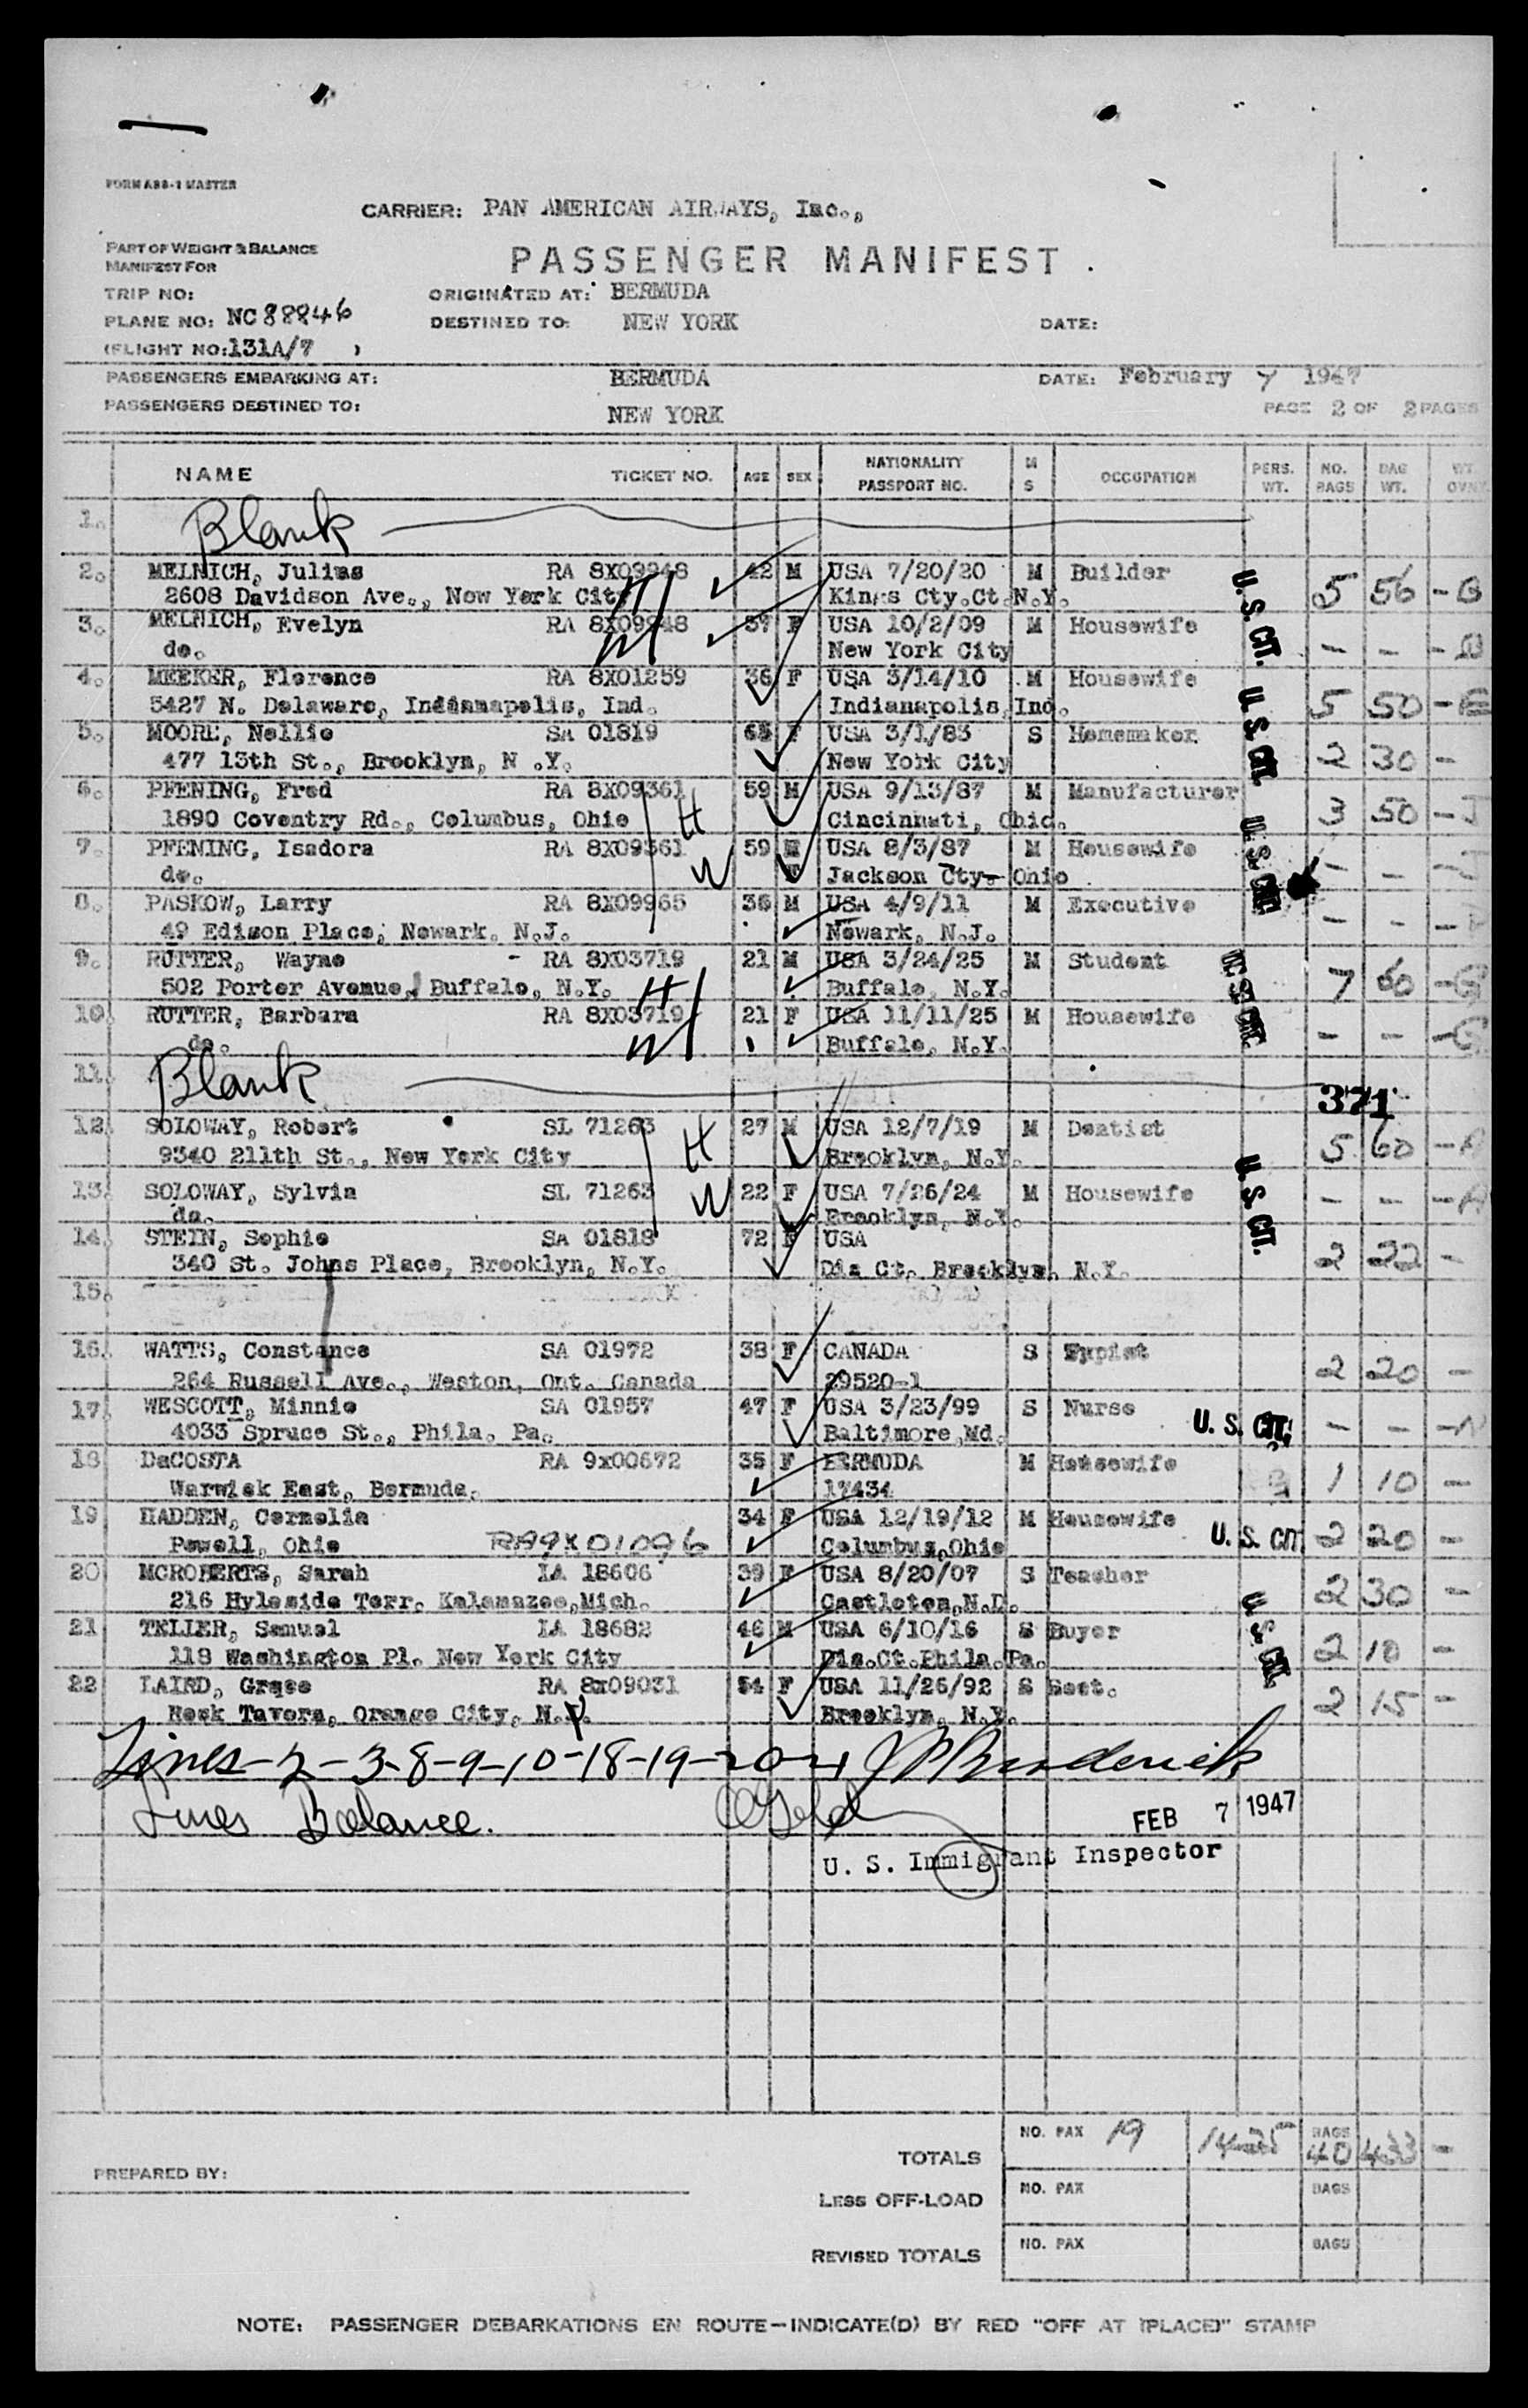 FORM ABB-1 MASTER
CARRIER: PAN AMERICAN AIRWAYS, Inc.,
PART OF WEIGHT & BALANCE
MANIFEST FOR
PASSENGER MANIFEST
TRIP NO:
ORIGINATED AT: BERMUDA
PLANE NO: NC 88846
DESTINED TO: NEW YORK
DATE:
(FLIGHT NO: 131A/7 )
PASSENGERS EMBARKING AT: BERMUDA
DATE: February 7 1947
PASSENGERS DESTINED TO: NEW YORK
PAGE 2 OF 2 PAGES
NAME TICKET NO. AGE SEX NATIONALITY PASSPORT NO. M S OCCUPATION PERS. WT. NO. BAGS BAG WT. WT.
1. Blank
2. MELNICH, Julius RA 8X09948 42 M USA 7/20/20 M Builder 5 56 -B
2608 Davidson Ave., New York City H Kings Cty.Ct.N.Y. U.S. CIT.
3. MELNICH, Evelyn RA 8X09948 37 F USA 10/2/09 M Housewife - - -B
do. W New York City
4. MEEKER, Florence RA 8X01259 36 F USA 3/14/10 M Housewife 5 50 -E
5427 N. Delaware, Indianapolis, Ind. Indianapolis, Ind. U.S. CIT.
5. MOORE, Nellie SA 01819 65 F USA 3/1/83 S Homemaker 2 30 -
477 13th St., Brooklyn, N .Y. New York City
6. PFENING, Fred RA 8X09361 59 M USA 9/13/87 M Manufacturer 3 50 -J
1890 Coventry Rd., Columbus, Ohio H Cincinnati, Ohio. U.S. CIT.
7. PFENING, Isadora RA 8X09361 59 F USA 8/3/87 M Housewife - - -J
do. W Jackson Cty- Ohio
8. PASKOW, Larry RA 8X09965 36 M USA 4/9/11 M Executive - - -
49 Edison Place, Newark, N.J. Newark, N.J.
9. RUTTER, Wayne - RA 8X03719 21 M USA 3/24/25 M Student 7 60 -G
502 Porter Avenue, Buffalo, N.Y. H Buffalo, N.Y. U.S. CIT.
10. RUTTER, Barbara RA 8X03719 21 F USA 11/11/25 M Housewife - - -G
do. W Buffalo, N.Y.
11. Blank
371
12. SOLOWAY, Robert SL 71263 27 M USA 12/7/19 M Dentist 5 60 -A
9340 211th St., New York City H Brooklyn, N.Y. U.S. CIT.
13. SOLOWAY, Sylvia SL 71263 W 22 F USA 7/26/24 M Housewife - - -A
do. Brooklyn, N.Y.
14. STEIN, Sophie SA 01818 72 F USA 2 22 -
340 St. Johns Place, Brooklyn, N.Y. Dis Ct. Brooklyn, N.Y.
15.
16. WATTS, Constance SA 01972 38 F CANADA S Typist 2 20 -
264 Russell Ave., Weston, Ont. Canada 29520-1
17. WESCOTT, Minnie SA 01957 47 F USA 3/23/99 S Nurse U.S. CIT. - - -
4033 Spruce St., Phila. Pa. Baltimore,Md.
18 DaCOSTA RA 9x00672 35 F BERMUDA M Housewife 1 10 -
Warwick East, Bermuda. 17434
19 HADDEN, Cornelia 34 F USA 12/19/12 M Housewife U.S. CIT 2 20 -
Powell, Ohio RA9X01096 Columbus,Ohio
20 MCROBERTS, Sarah IA 18606 39 F USA 8/20/07 S Teacher 2 30 -
216 Hylamide Terr. Kalamazoo,Mich. Castleton,N.D. U.S. CIT.
21 TELIER, Samuel IA 18682 46 M USA 6/10/16 S Buyer 2 10 -
118 Washington Pl. New York City Dis.Ct.Phila.Pa.
22 LAIRD, Grace RA 8x09031 54 F USA 11/26/92 S Sect. 2 15 -
Tavern, Orange City, Brooklyn, N.Y.
Lines-2-3-8-9-10-18-19-20-21 Broderick
Lines Balance.
FEB 7 1947
U. S. Immigrant Inspector
TOTALS NO. PAX 19 1425 BAGS 40 433 -
PREPARED BY:
LESS OFF-LOAD NO. PAX BAGS
REVISED TOTALS NO. PAX BAGS
NOTE: PASSENGER DEBARKATIONS EN ROUTE—INDICATE(D) BY RED "OFF AT (PLACE)" STAMP